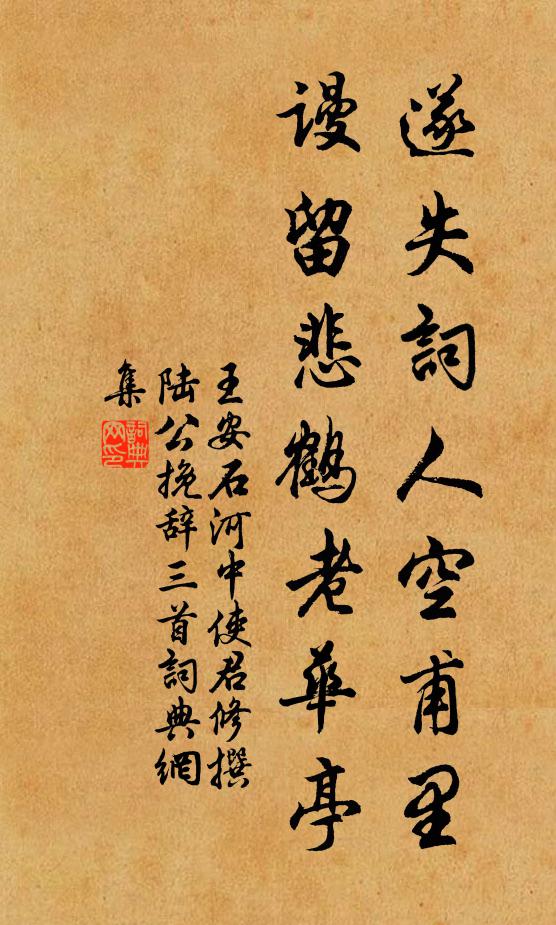 遂失詞人空甫里
謾留悲鶴老華亭
王安石河中使君修撰
陆公挽辞三首詞典網
集
詞典網印